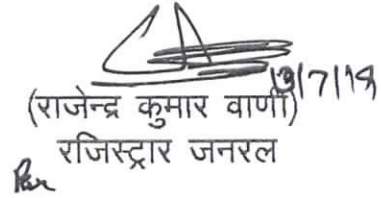 13/7/19
(राजेन्द्र कुमार वाणी)
रजिस्ट्रार जनरल